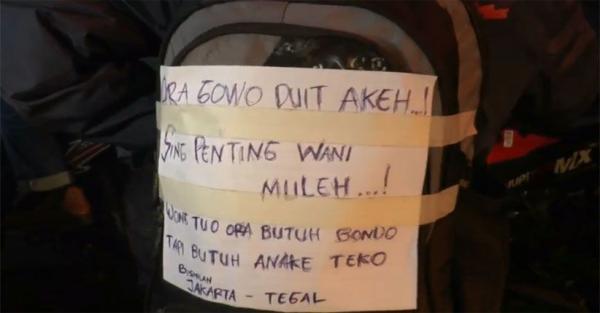 ORA GOWO DUIT AKEH..!
SING PENTING WANI
MULEH...!
WONG TUO ORA BUTUH BONDO
TAPI BUTUH ANAKE TEKO
BISMILAH
JAKARTA - TEGAL
MX